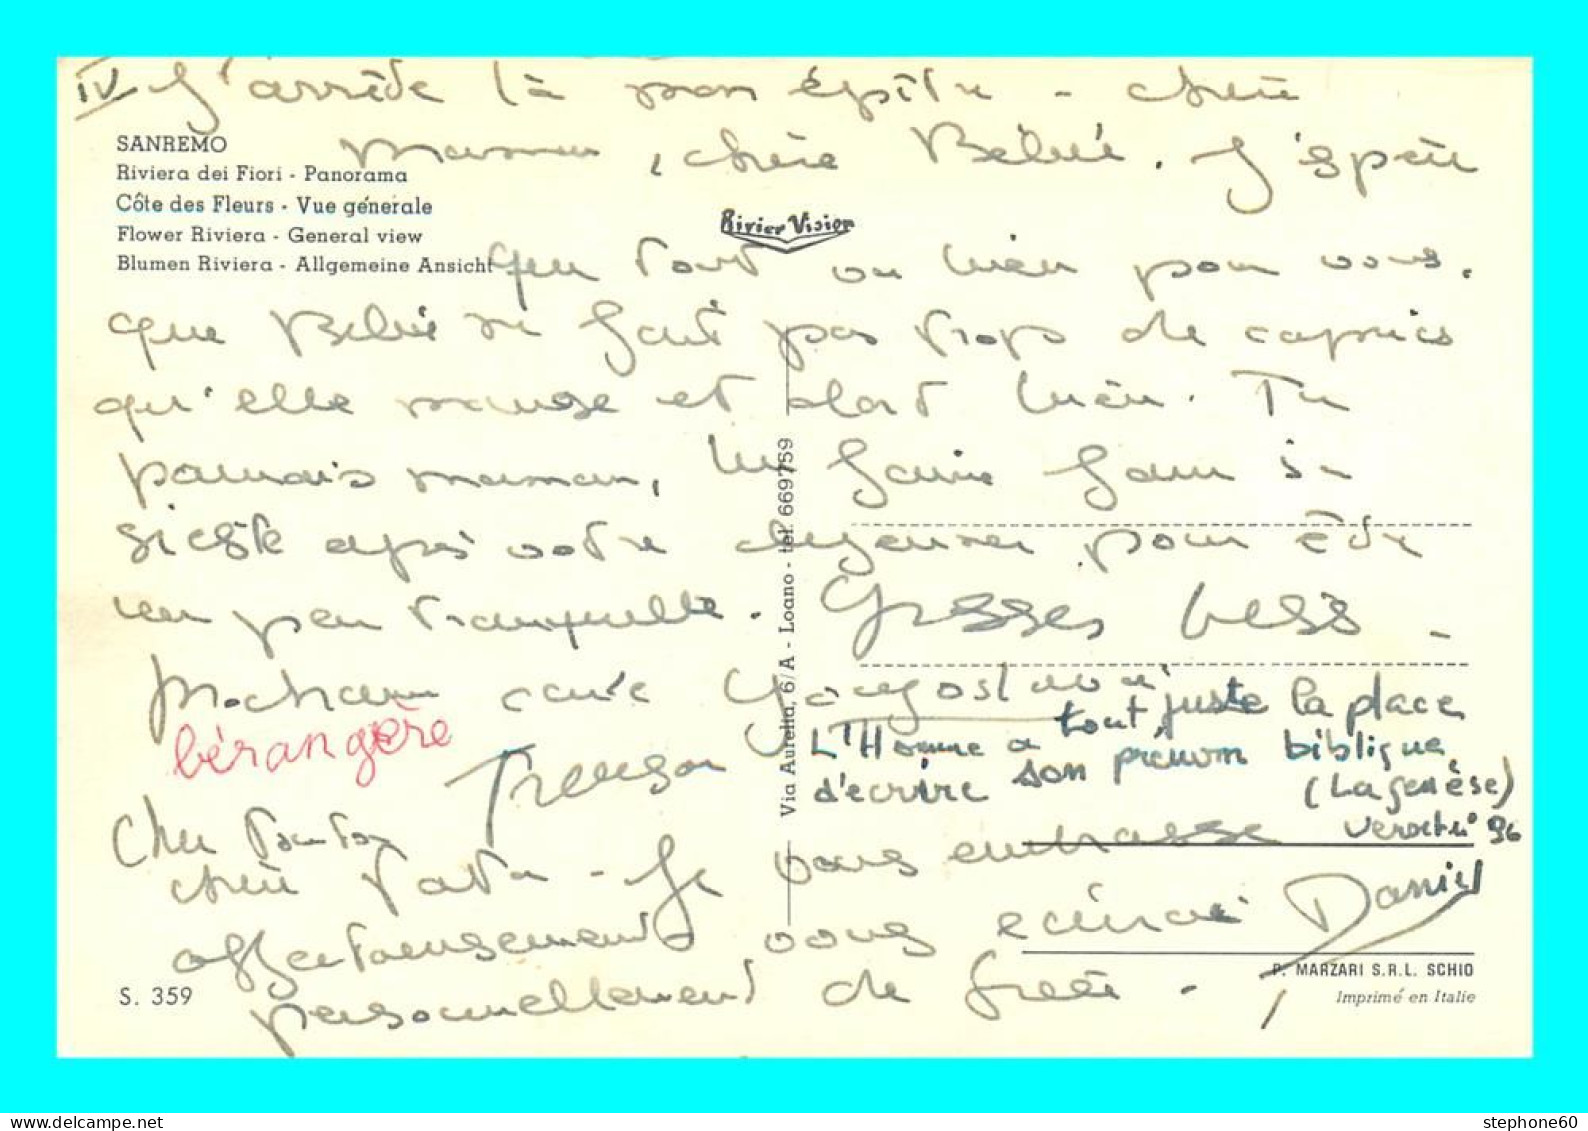 IV J'arrête là mon épître - chère
maman, chère Bébé. J'espère
SANREMO
Riviera dei Fiori - Panorama
Côte des Fleurs - Vue générale
Flower Riviera - General view
Blumen Riviera - Allgemeine Ansicht
Rivier Vision
que tout va bien pour vous,
que Bébé ne fait pas trop de caprices
qu'elle mange et dort bien. Tu
pourrais maman, lui faire faire sa
sieste après votre déjeuner pour être
un peu tranquille. Grosses bess -
Prochaine carte Yougoslavie
bérangère
tout juste la place
L'Homme a
d'écrire son prénom biblique
(La genèse)
verset n° 96
Cher Tonton
chère Tata - Je vous embrasse
affectueusement vous écrirai Daniel
personnellement de Grèce -
Via Aurelia, 6/A - Loano - tel. 669759
S. 359
P. MARZARI S.R.L. SCHIO
Imprimé en Italie
stephone60